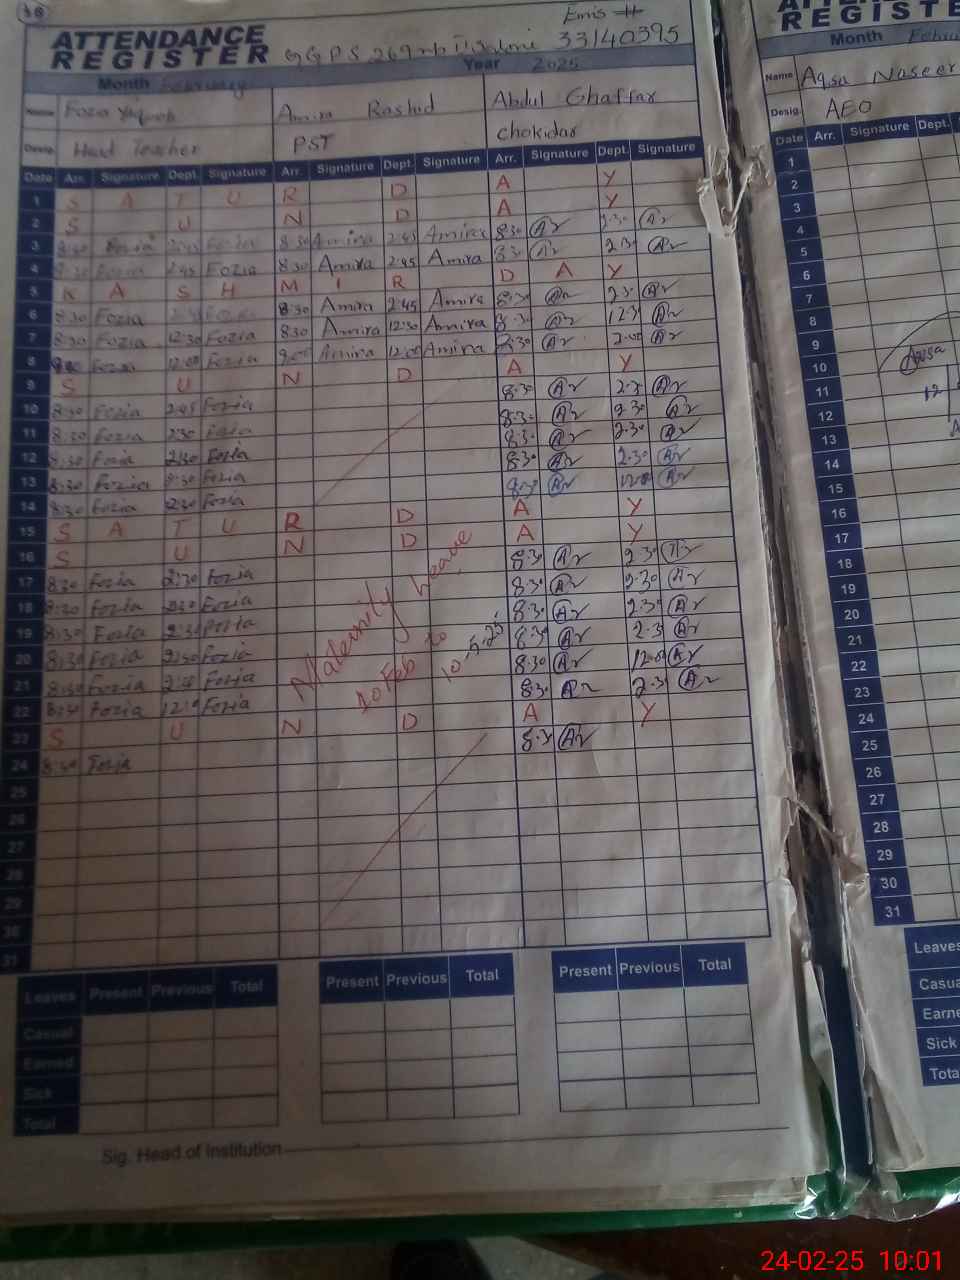 16
Emis #
ATTENDANCE REGISTER GGPS 269 rb 33140395
Month February Year 2025
Name Fozia Yaqoob Amira Rashid Abdul Ghaffar
Desig. Head Teacher PST Chokidar
Date Arr. Signature Dept. Signature Arr. Signature Dept. Signature Arr. Signature Dept. Signature
1 S A T U R D A Y
2 S U N D A Y
3 8:30 Fozia 2:45 Fozia 8:30 Amira 2:45 Amira 8:30 2:30
4 8:30 Fozia 2:45 Fozia 8:30 Amira 2:45 Amira 8:30 2:30
5 K A S H M I R D A Y
6 8:30 Fozia 2:45 Fozia 8:30 Amira 2:45 Amira 8:30 2:30
7 8:30 Fozia 12:30 Fozia 8:30 Amira 12:30 Amira 8:30
8 Fozia 12:00 Fozia 9:00 Amira 12:00 Amira 8:30 2:00
9 S U N D A Y
10 8:30 Fozia 2:45 Fozia 8:30 2:30
11 8:30 Fozia 2:30 Fozia 8:30 2:30
12 8:30 Fozia 2:30 Fozia 8:30 2:30
13 8:30 Fozia 2:30 Fozia 8:30 2:30
14 8:30 Fozia 12:30 Fozia 8:30
15 S A T U R D A Y
16 S U N D A Y
17 8:30 Fozia 2:30 Fozia 8:30 2:30
18 8:30 Fozia 2:30 Fozia 8:30 2:30
19 8:30 Fozia 2:30 Fozia 8:30 2:30
20 8:30 Fozia 2:30 Fozia 8:30 2:30
21 8:30 Fozia Fozia 8:30
22 8:30 Fozia Fozia 8:30 2:30
23 S U N D A Y
24 8:30 Fozia 8:30
25
26
27
28
29
30
31
Maternity Leave
10 Feb to
10-5-25
Leaves Present Previous Total Present Previous Total Present Previous Total
Casual
Earned
Sick
Total
Sig. Head of Institution
REGISTE
Month Febru
Name Aqsa Naseer
Desig. AEO
Date Arr. Signature Dept.
1
2
3
4
5
6
7
8
9
10
11
12
13
14
15
16
17
18
19
20
21
22
23
24
25
26
27
28
29
30
31
Leaves
Casua
Earne
Sick
Tota
24-02-25 10:01